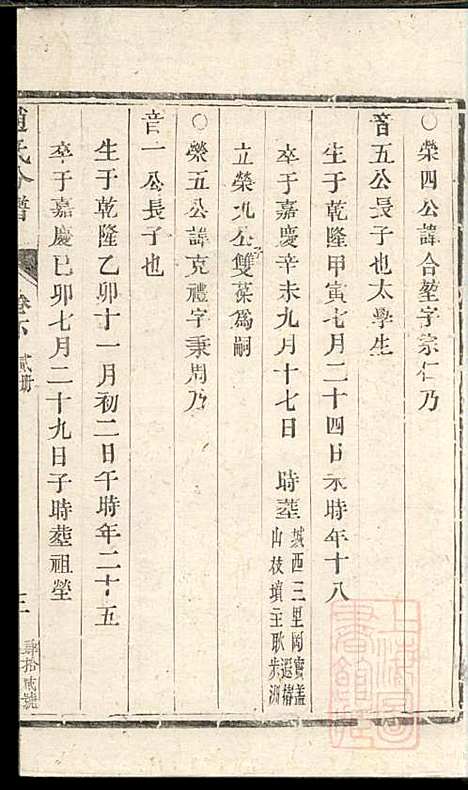 〇榮四公諱合堃字宗仁乃
音五公長子也太學生
生于乾隆甲寅七月二十四日未時年十八
卒于嘉慶辛未九月十七日　時塟城西三里岡寶蓋山枝墳主耿
立榮九公雙葉爲嗣
〇榮五公諱克禮字秉周乃
音一公長子也
生于乾隆乙卯十一月初二日午時年二十五
卒于嘉慶己卯七月二十九日子時塟祖塋
趙氏分譜
卷 貳册
三
肆拾貳號
上海圖書館藏